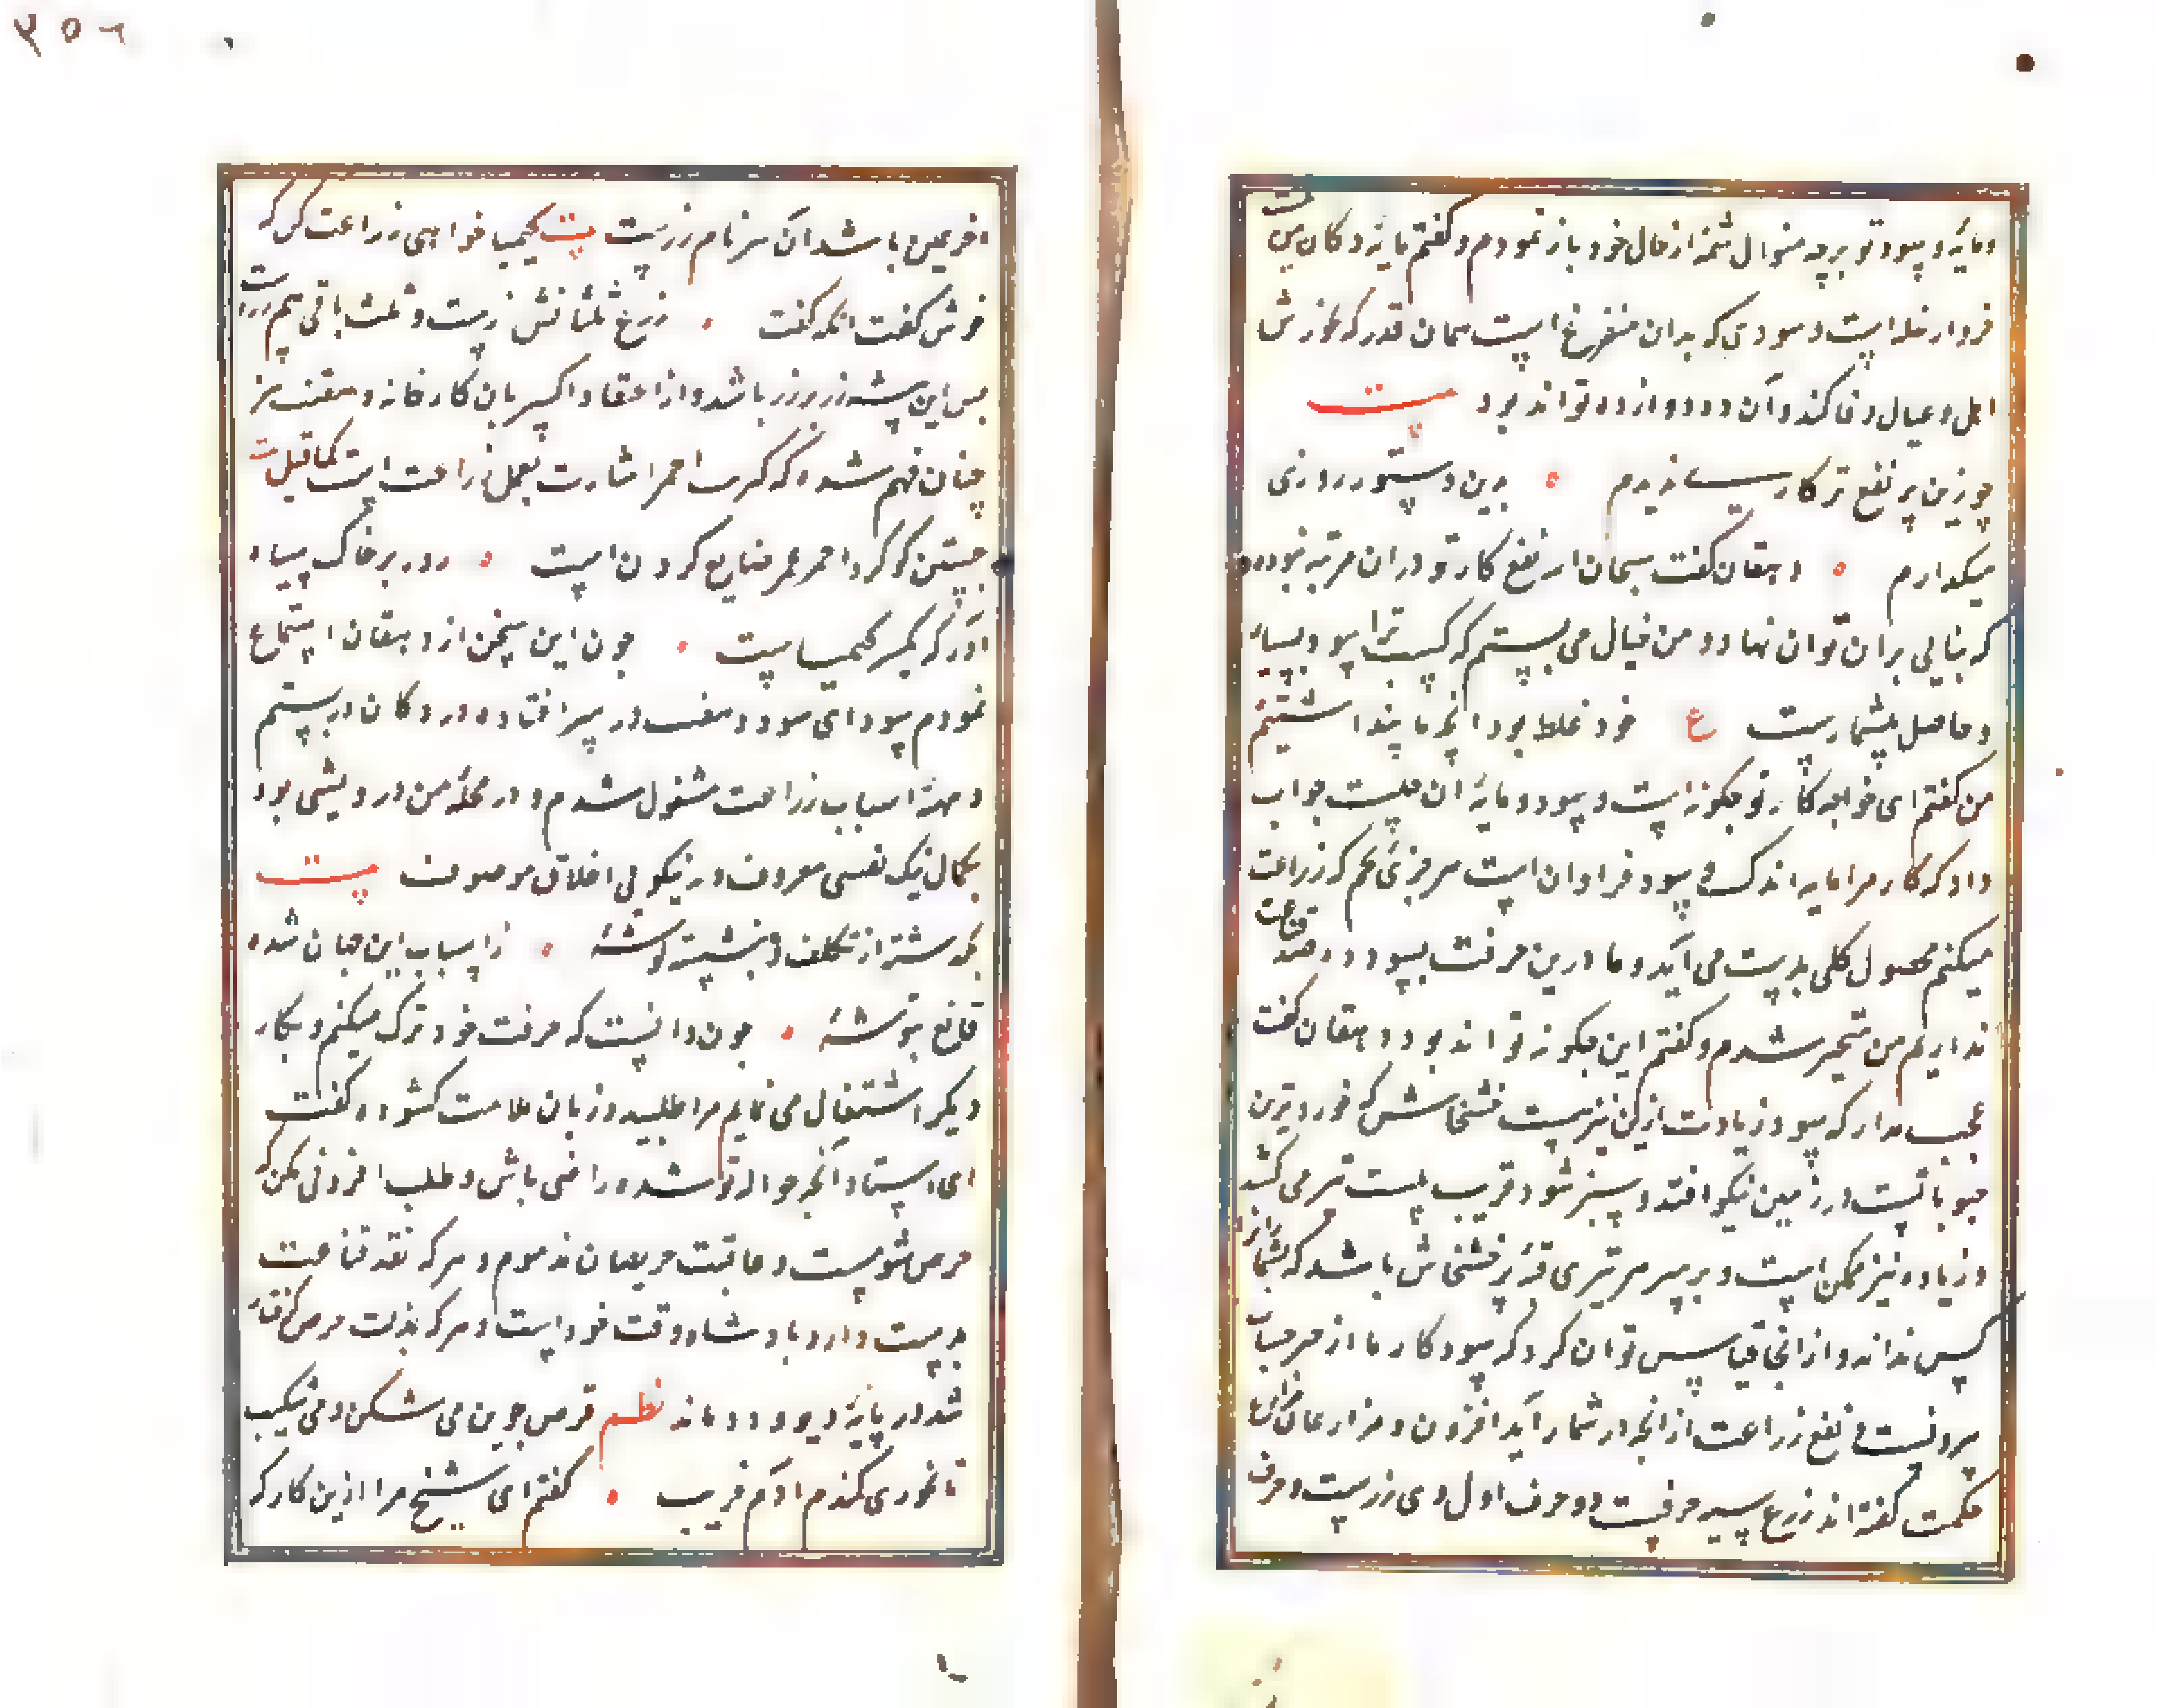 و مایهٔ و سود تو بر چه منوال شمهٔ از حال خود باز نمودم و گفتم مایهٔ دکان من
خروار غله است و سودی که بدان متفرع است همان قدر که خورش
اهل و عیال وفا کند و آن ده دوازده تواند بود بیت
چو زین پر نفع تر کاری ندارم بدین دستور روزی
میگذارم دهقان گفت سبحان الله نفع کار تو در ان مرتبه نبوده
که بنایی بران توان نهاد و من خیال می بستم که کسب ترا سود بسیار
و حاصل بیشمارست ع خود غلط بود انچه ما پنداشتیم
من گفتم ای خواجه کار تو چگونه است و سود و مایهٔ ان چیست جواب
داد که کار مرا مایه اندک و سود فراوان است هر جزئی تخم که زراعت
میکنم محصول کلی بدست می آید و ما درین حرفت بسود ده صد قناعت
نداریم من متحیر شدم و گفتم این چگونه تواند بود دهقان گفت
عجب مدار که سود زیادت ازین نیز هست خشخاش که خوردترین
حبوباتست در زمین نیکو افتد و سبز شود قریب بیست تیر می کشد
و زیاده نیز ممکن است و بر سر هر تیری قبهٔ پر خشخاش باشد که شمار انرا
کس نداند و ازانجا قیاس توان کرد که سود کار ما از حد حساب
بیرونست و نفع زراعت از انچه در شمار آید افزون و مزارعان مزارع
حکمت گفته اند زرع سه حرفست دو حرف اول وی زرست و حرف
اخر عین باشد آن نیز نام زرست بیت کیمیا خواهی زراعت کن که
خوش گفت انکه گفت زرع ثلثانش زرست و ثلث باقی هم زرست
پس این پیشه زر بر زر باشد و از اعتقاد اکسیریان کارخانه
چنان فهم شده که کبریت احمر اشارت بعمل زراعت است کما قیل بیت
جستن گوگرد احمر عمر ضایع کردن است رو بر خاک سیاه
آور که یکسر کیمیاست چون این سخن از دهقان استماع
نمودم سودای سود دهقنت در سر افتاده در دکان در بستم
و بتهیهٔ اسباب زراعت مشغول شدم و در محلهٔ من درویشی بود
بکمال نیک نفسی معروف و نیکویی اخلاق موصوف بیت
گذشته از تکلف و نشسته گوشهٔ ز اسباب این جهان شده
قانع بتوشهٔ چون دانست که حرفت خود ترک میکنم و بکار
دیگر اشتغال می نمایم مرا طلبید و زبان ملامت گشود و گفت
ای استاد آنچه حواله تو شده راضی باش و طلب افزونی مکن که
حرص شومست و عاقبت حریصان مذموم و هر که نقد قناعت
بدست دارد پادشاه وقت خود است و هر که بذلت حرص گرفتار
شد در پایهٔ دیو و دد ماند نظم قرص جوین می شکن و می شکیب
تا نخوری گندم آدم فریب گفتم ای شیخ مرا ازین کار که